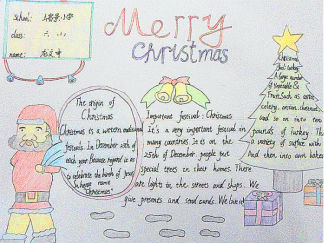 School:
class:
name:
Merry
Christmas
The origin of
Christmas
Christmas is a western
festivals. In December 25th of
each year. Because
to celebrate the birth of Jesus
In hence name
"Christmas".
Important festivals: Christmas
It's a very important festival in
many countries. It is on the
25th of December. people put
special trees in their homes. There
are lights in the streets and shops. We
give presents and send cards. We
Christmas
turkey
A large number
of vegetable &
fruit. Such as
celery, onion, chestnut
and so on into ten
pounds of turkey. Then
a variety of surface with
And then into oven baked